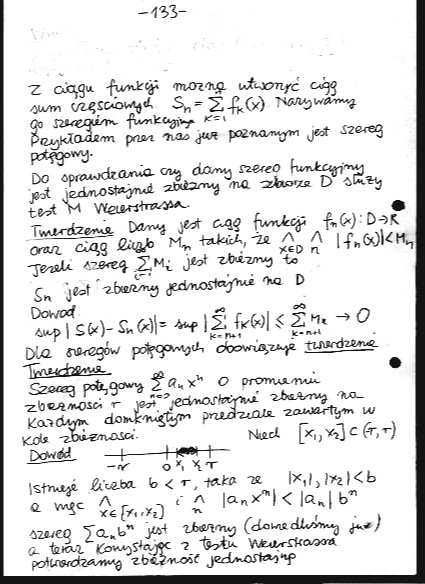 -133-
Z ciągu funkcji można utworzyć ciąg
sum częściowych Sₙ = ∑_{k=1}^{n} fₖ(x). Nazywamy
go szeregiem funkcyjnym
Przykładem przez nas już poznanym jest szereg
potęgowy.
Do sprawdzania czy dany szereg funkcyjny
jest jednostajnie zbieżny na zbiorze D służy
test M Weierstrassa.
Twierdzenie Dany jest ciąg funkcji fₙ(x): D→R
oraz ciąg liczb Mₙ takich, że ⋀_{x∈D} ⋀_{n} |fₙ(x)|<Mₙ
Jeżeli szereg ∑_{i=1}^{∞} Mᵢ jest zbieżny to
Sₙ jest zbieżny jednostajnie na D
Dowód
sup |S(x)-Sₙ(x)| = sup |∑_{k=n+1}^{∞} fₖ(x)| ≤ ∑_{k=n+1}^{∞} Mₖ → 0
Dla szeregów potęgowych obowiązuje twierdzenie
Twierdzenie
Szereg potęgowy ∑_{n=0}^{∞} aₙxⁿ o promieniu
zbieżności r jest jednostajnie zbieżny na
każdym domkniętym przedziale zawartym w
kole zbieżności. Niech [x₁,x₂] ⊂ (r,r)
Dowód -r 0 x₁ x₂ r
Istnieje liczba b < r, taka że |x₁|,|x₂|<b
a więc ⋀_{x∈[x₁,x₂]} i ⋀_{n} |aₙxⁿ| < |aₙ| bⁿ
szereg ∑aₙbⁿ jest zbieżny (dowiedliśmy już)
a teraz korzystając z testu Weierstrassa
potwierdzamy zbieżność jednostajną